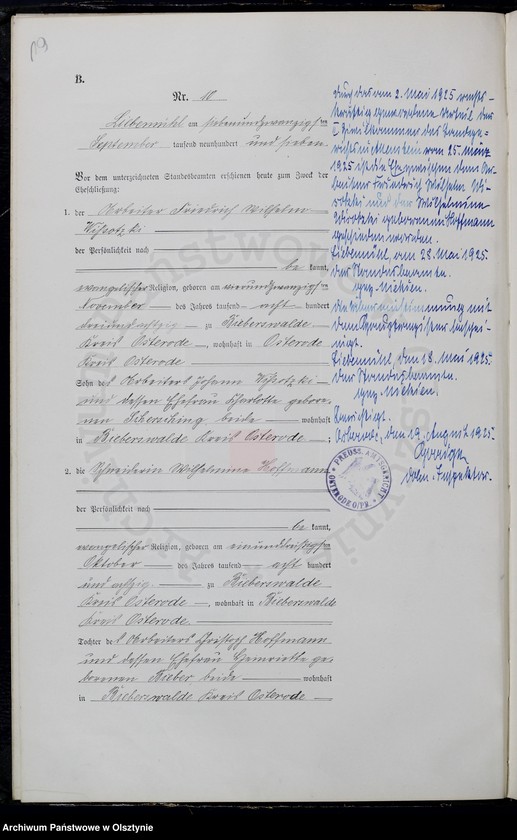 B.
Nr. 10
Liebemühl am siebenundzwanzigsten
September tausend neunhundert und sieben
Vor dem unterzeichneten Standesbeamten erschienen heute zum Zweck der
Eheschließung:
1. der Arbeiter Friedrich Wilhelm
der Persönlichkeit nach
be kannt,
evangelischer Religion, geboren am vierundzwanzigsten
November des Jahres tausend acht hundert
dreiundachtzig zu Bieberswalde
Kreis Osterode, wohnhaft in Osterode
Kreis Osterode
Sohn des Arbeiters Johann
und dessen Ehefrau Charlotte gebore-
nen beide wohnhaft
in Bieberswalde Kreis Osterode;
2. die Schneiderin Wilhelmine Hoffmann
der Persönlichkeit nach
be kannt,
evangelischer Religion, geboren am einunddreißigsten
Oktober des Jahres tausend acht hundert
und achtzig zu Bieberswalde
Kreis Osterode, wohnhaft in Bieberswalde
Kreis Osterode.
Tochter des Arbeiters Christoph Hoffmann
und dessen Ehefrau Henriette ge-
borenen Bieber beide wohnhaft
in Bieberswalde Kreis Osterode
Durch das am 2. Mai 1925 rechts-
kräftig gewordene Urteil der
Zivilkammer des Landge-
richts Allenstein vom 25. März
1925 ist die Ehe zwischen dem Ar-
beiter Friedrich Wilhelm
und der Wilhelmine
geborenen Hoffmann
geschieden worden.
Liebemühl, am 28. Mai 1925.
Der Standesbeamte.
gez.
Die Übereinstimmung mit
dem Hauptregister beschei-
nigt.
Liebemühl, den 28. Mai 1925.
Der Standesbeamte.
Berichtigt.
Osterode, den 19. August 1925.
PREUSS. AMTSGERICHT
OSTERODE O/PR.
Archiwum Państwowe w Olsztynie